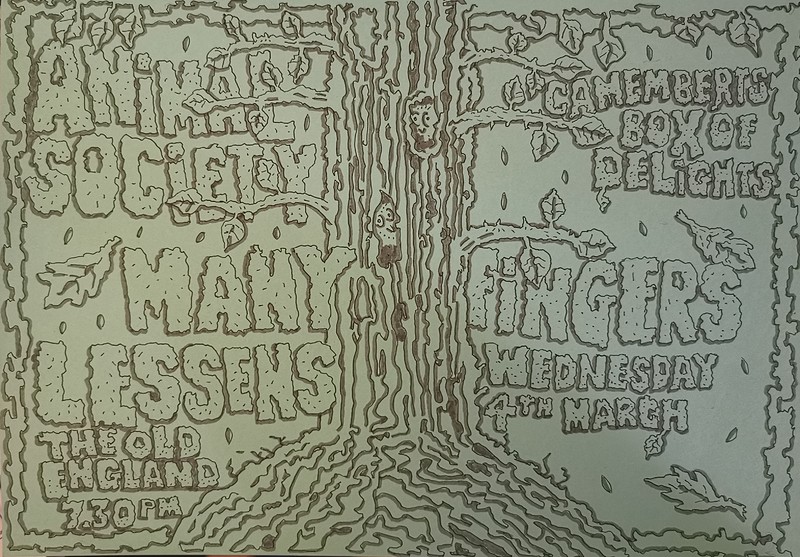 ANiMAL
SOCiETY
MANY
LESSENS
THE OLD
ENGLAND
7.30PM
CAMEMBERTS
BOX OF
DELiGHTS
FiNGERS
WEDNESDAY
4TH MARCH